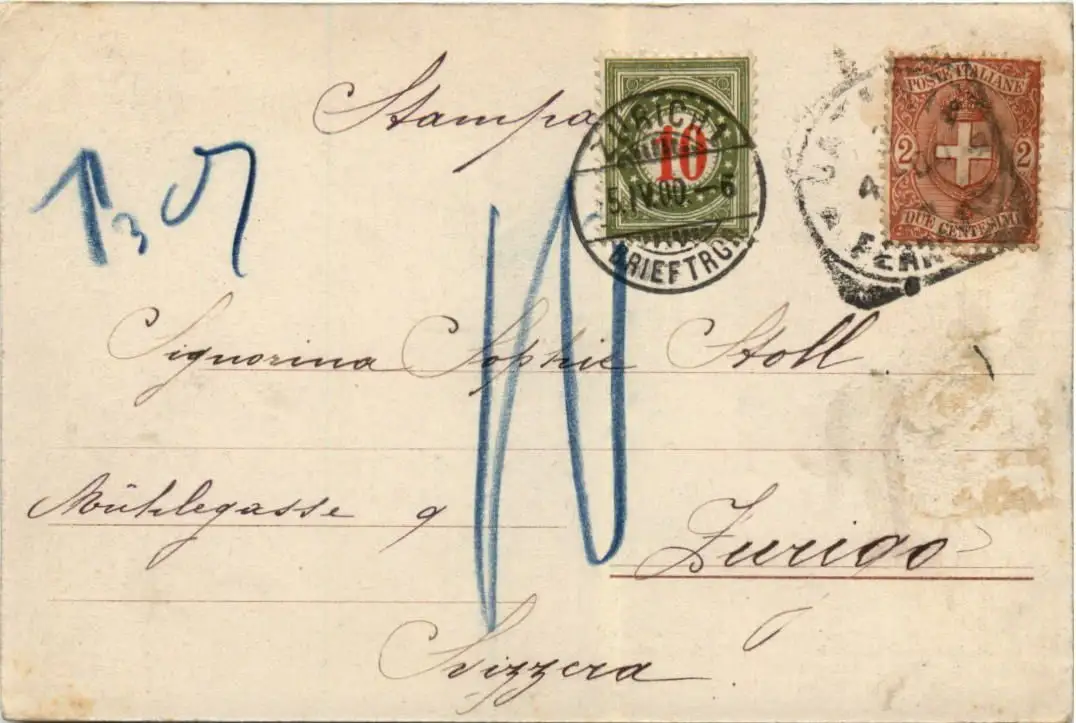 Stampa
ZÜRICH 1
10
5.IV.00.–6
BRIEFTRG.
POSTE ITALIANE
2 2
DUE CENTESIMI
4
FERR
Signorina Sophie Stoll
Mühlegasse 9
Zurigo
Svizzera